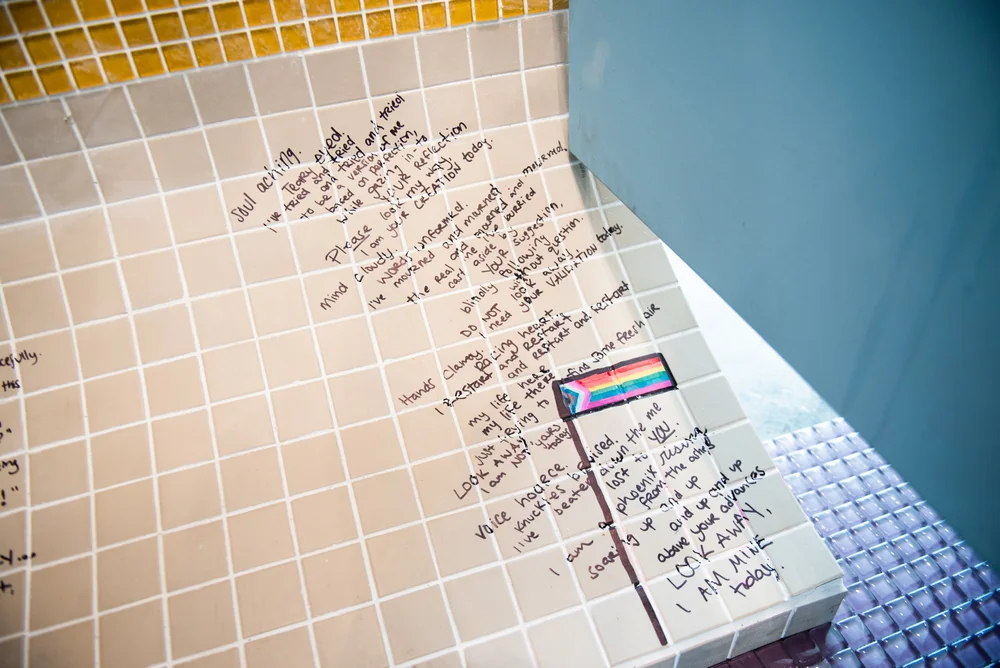 cefully.
this
ng
!"
Y...
Soul aching. Teary eyed.
I've tried and tried and tried and tried
to be a version of me
based on perfection,
while gazing in to
YOUR reflection
Please look my way
I am your CREATION today.
Mind cloudy. Words unformed.
I've mourned and mourned and mourned and mourned.
the real me I've buried
cast aside by
blindly following YOUR suggestion,
without question.
DO NOT look away
I need your VALIDATION today.
Hands clamay. Racing heart.
I Restart and Restart and restart and restart
my life here
my life there
Just trying to find some fresh air
LOOK AWAY
I am NOT yours today
Voice hoarce. Knuckles bruised.
I've beaten down the me
lost to YOU.
I am a phoenix rising
from the ashes
soaring up and up and up and up
above your advances
LOOK AWAY,
I AM MINE today.